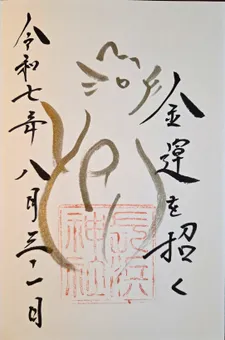 金運を招く
長浜
神社
令和七年八月三十一日